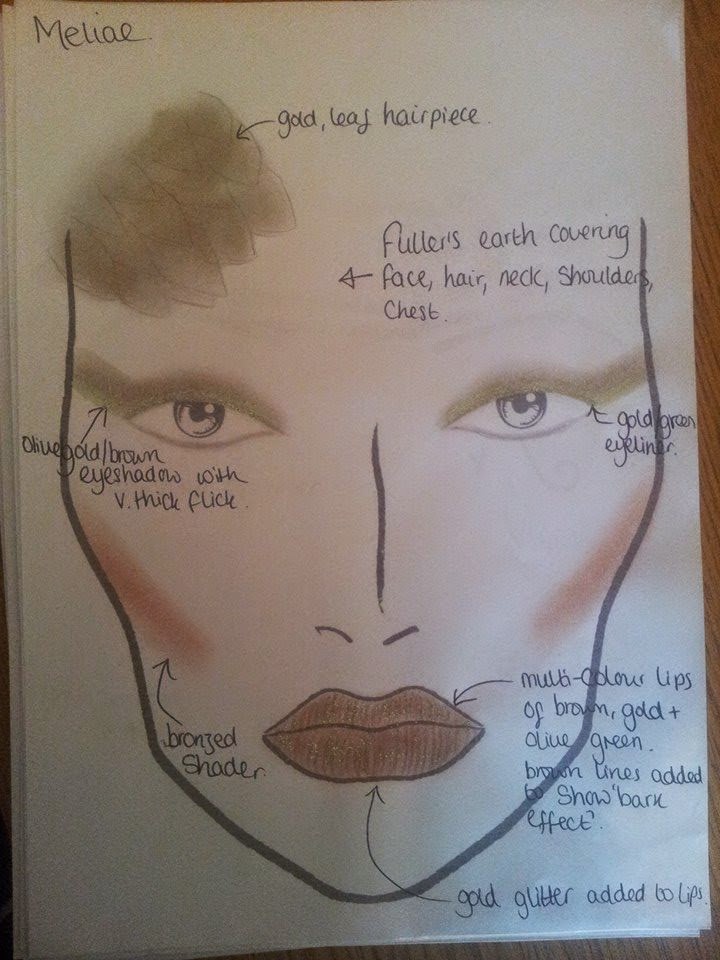 Meliae.
gold, leaf hairpiece.
Fuller's earth covering
face, hair, neck, shoulders,
chest.
Olive gold/brown
eyeshadow with
v. thick flick.
gold/green
eyeliner.
multi-colour lips
of brown, gold +
olive green.
brown lines added
to show 'bark
effect'.
bronzed
shader.
gold glitter added to lips.